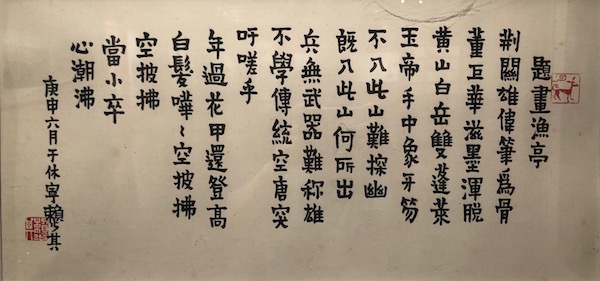 題畫漁亭
荆關雄偉筆爲骨
董巨華滋墨渾脫
黄山白岳雙蓬萊
玉帝手中象牙笏
不入此山難探幽
既入此山何所出
兵無武器難称雄
不學傳統空唐突
吁嗟乎
年過花甲還登高
白髮嘩〻空披拂
空披拂
當小卒
心潮沸
庚申六月于休寧賴少其